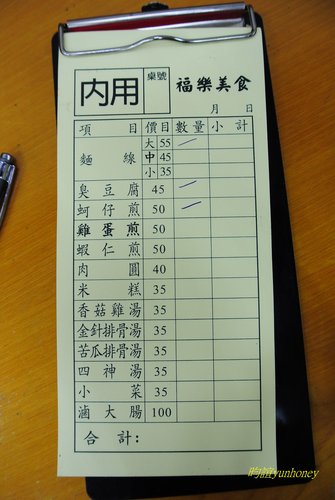 內用 桌號 福樂美食
月 日
項目 價目 數量 小計
麵線 大 55
中 45
小 35
臭豆腐 45
蚵仔煎 50
雞蛋煎 50
蝦仁煎 50
肉圓 40
米糕 35
香菇雞湯 35
金針排骨湯 35
苦瓜排骨湯 35
四神湯 35
小菜 35
滷大腸 100
合計:
昀誼yunhoney